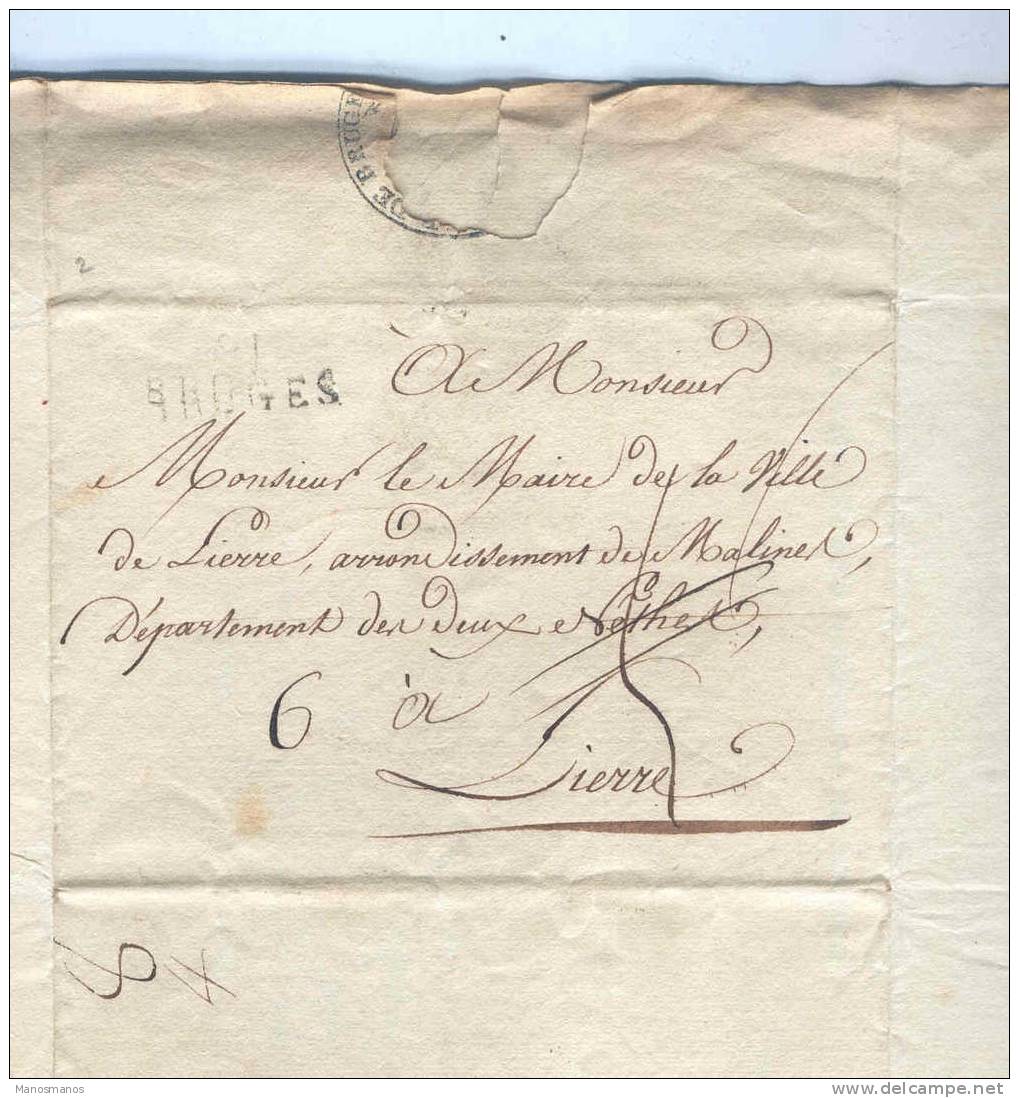 DE BRUGE
2
91
BRUGES
À Monsieur
Monsieur le Maire de la Ville
de Lierre, arrondissement de Malines,
Département des deux Nethes,
6 à
Lierre
8 4
Manosmanos
delcampe.net